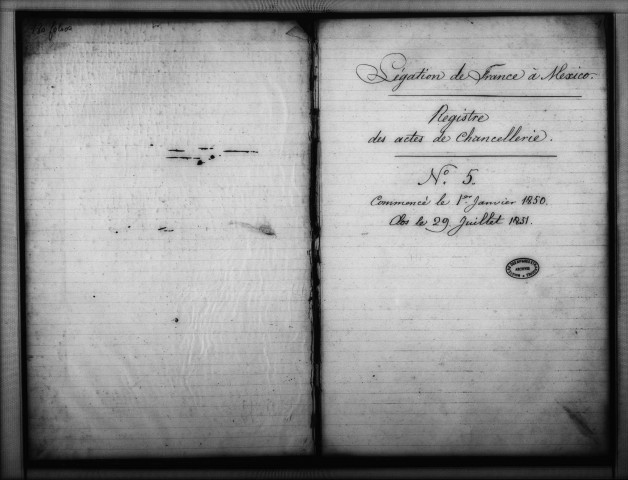 Légation de France à Mexico.
Registre
des actes de Chancellerie.
N.º 5.
Commencé le 1.er Janvier 1850.
Clos le 29 Juillet 1851.
ARCHIVES